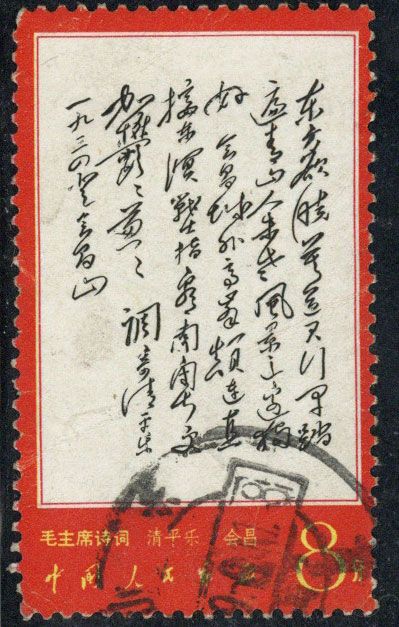 东方欲晓莫道君行早踏
遍青山人未老风景这边独
好 会昌城外高峰颠连直
接东溟战士指看南粤更
加欝〻葱〻 调寄清平乐
一九三四登会昌山
毛主席诗词 清平乐 会昌
中国人民邮政 8分